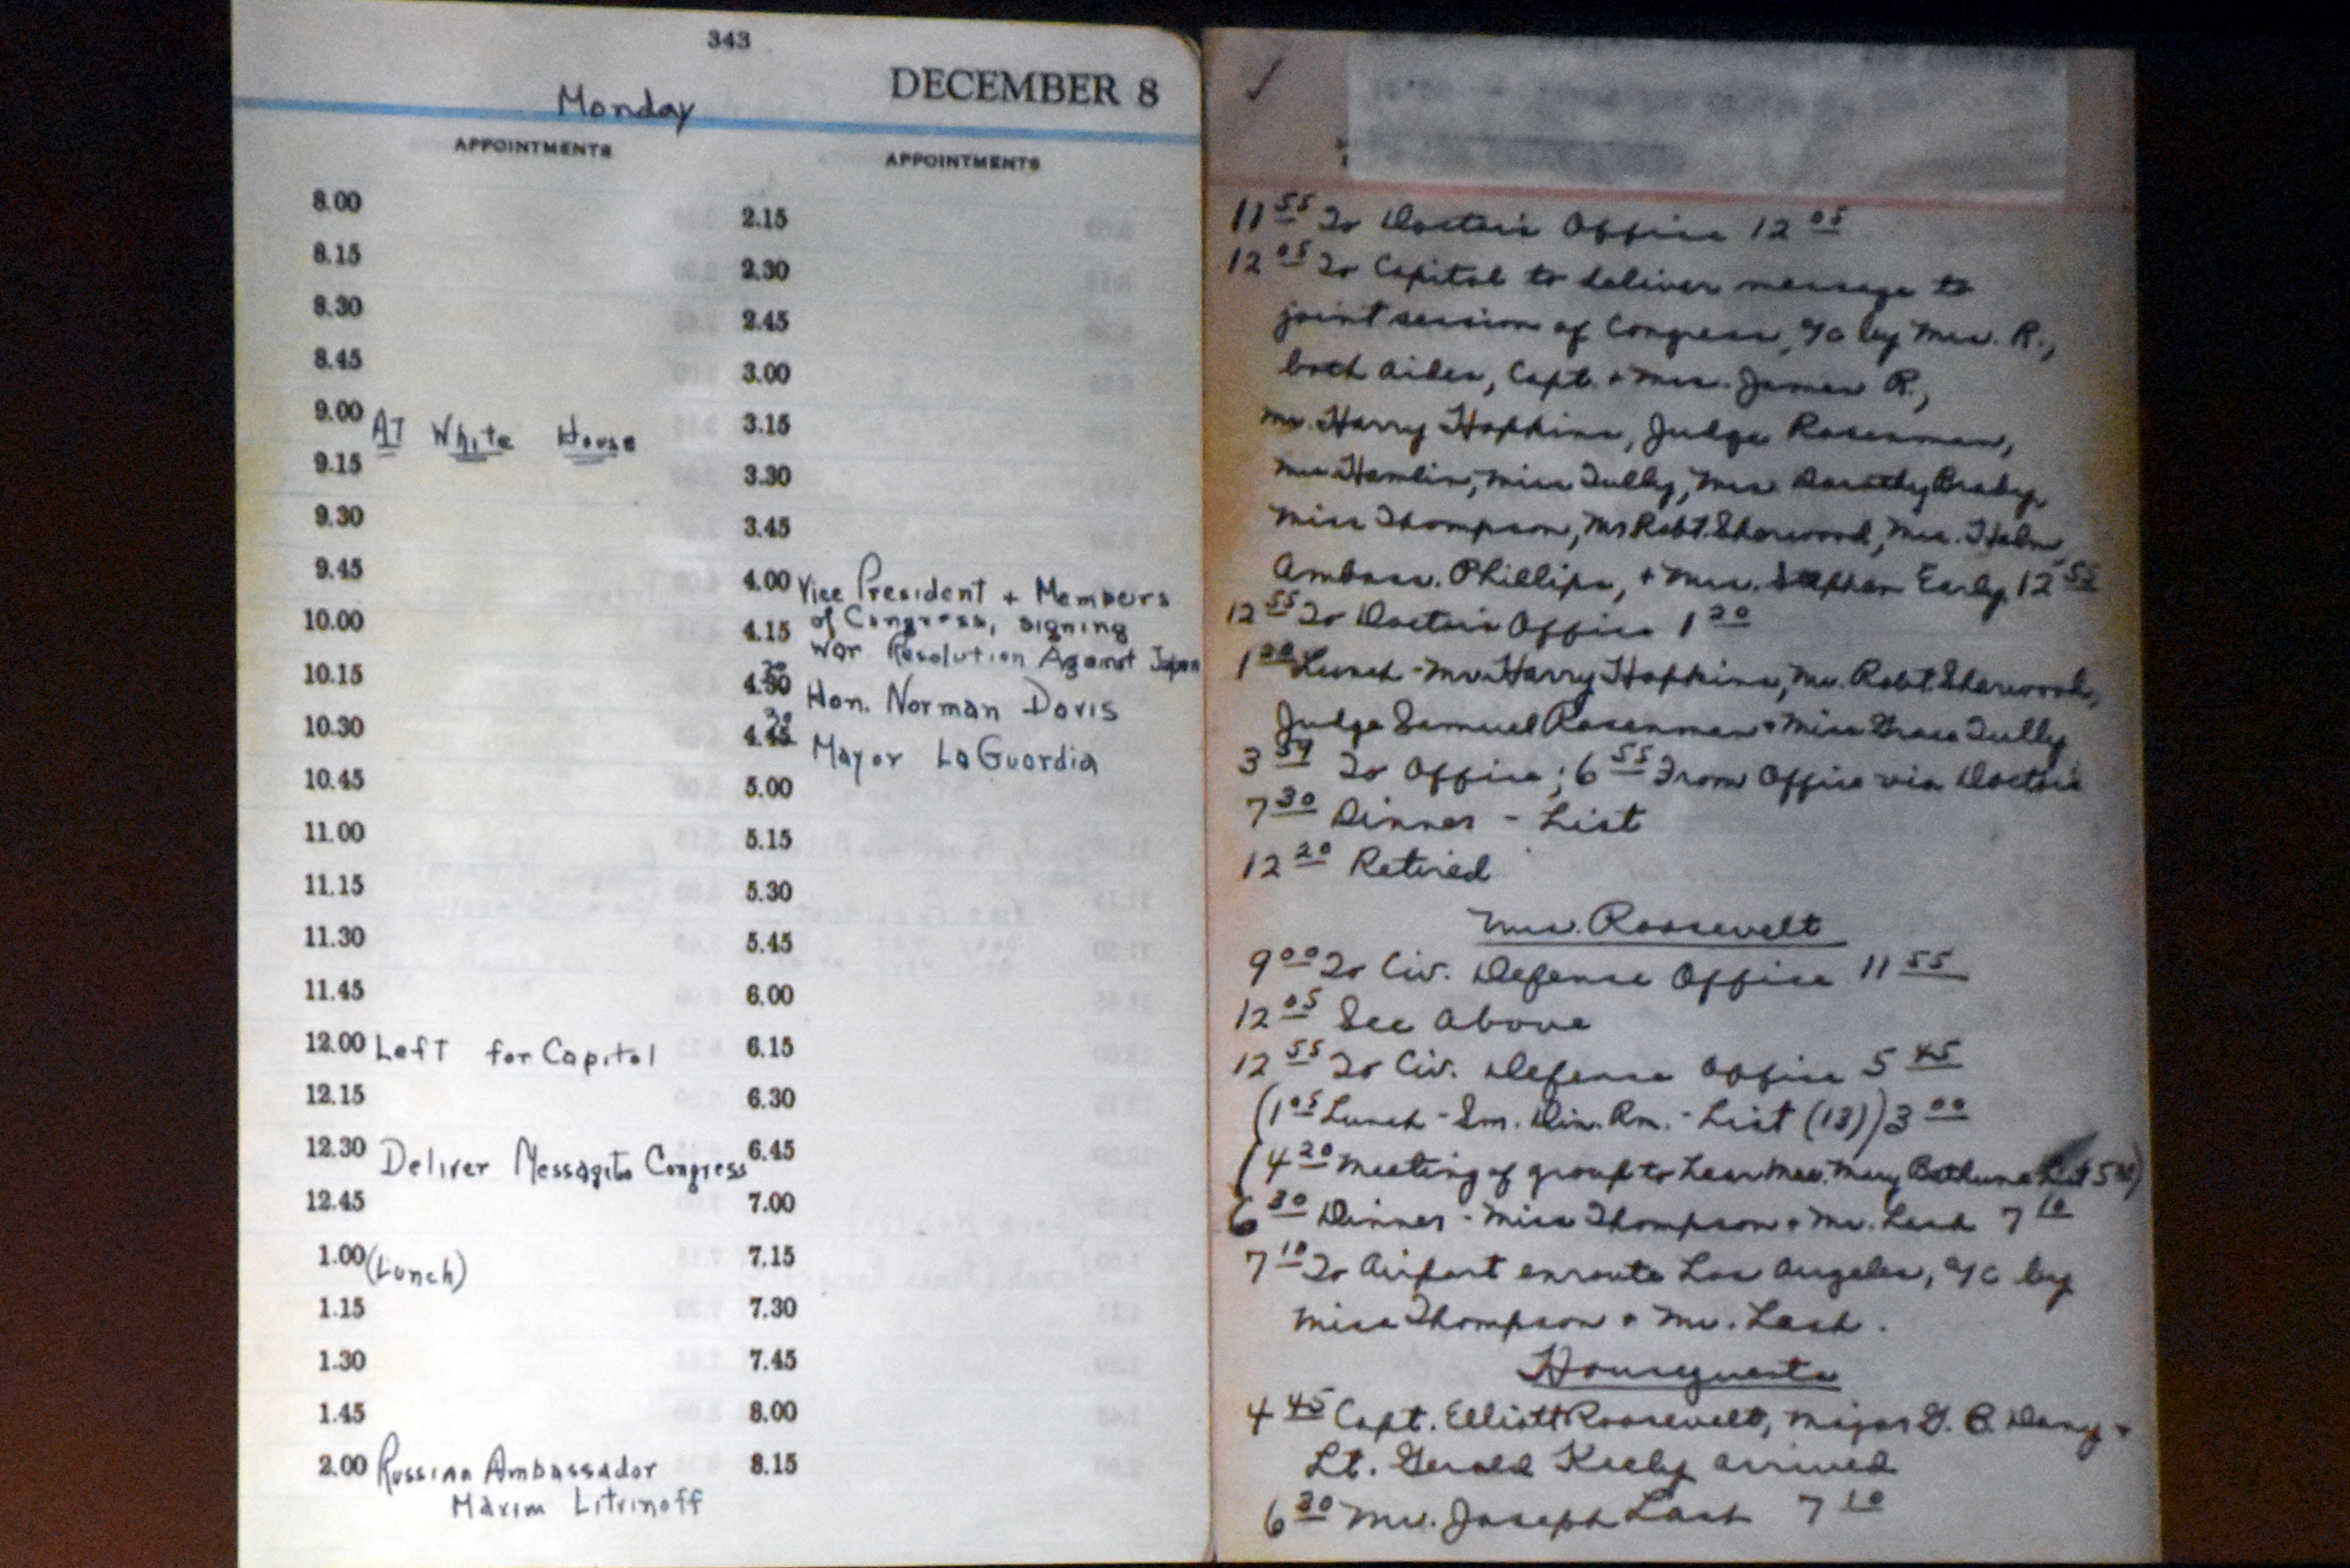 343
Monday
DECEMBER 8
APPOINTMENTS
8.00
8.15
8.30
8.45
9.00 At White House
9.15
9.30
9.45
10.00
10.15
10.30
10.45
11.00
11.15
11.30
11.45
12.00 Left for Capitol
12.15
12.30 Deliver Message to Congress
12.45
1.00 (Lunch)
1.15
1.30
1.45
2.00 Russian Ambassador
Maxim Litvinoff
APPOINTMENTS
2.15
2.30
2.45
3.00
3.15
3.30
3.45
4.00 Vice President + Members
of Congress, signing
4.15 War Resolution Against Japan
4.30 Hon. Norman Davis
4.45 Mayor LaGuardia
5.00
5.15
5.30
5.45
6.00
6.15
6.30
6.45
7.00
7.15
7.30
7.45
8.00
8.15
11 55 To Doctor's Office 12 05
12 05 To Capitol to deliver message to
joint session of Congress, a/c by Mrs. R.,
both aides, Capt. + Mrs. James R.,
Mr. Harry Hopkins, Judge Rosenman,
Mrs Hamlin, Miss Tully, Mrs Dorothy Brady,
Miss Thompson, Mr Robt. Sherwood, Mrs. Helm,
Ambass. Phillips, + Mrs. Stephen Early 12 55
12 55 To Doctor's Office 1 20
1 20 Lunch - Mr. Harry Hopkins, Mr. Robt. Sherwood,
Judge Samuel Rosenman + Miss Grace Tully
3 59 To Office; 6 55 From Office via Doctor's
7 30 Dinner - List
12 20 Retired
Mrs. Roosevelt
9 00 To Civ. Defense Office 11 55
12 05 See Above
12 55 To Civ. Defense Office 5 45
(1 05 Lunch - Sm. Din. Rm. - List (13)) 3 00
(4 20 Meeting of group to hear Mrs. Mary Bethune List 5
6 30 Dinner - Miss Thompson + Mr. Lash 7 10
7 10 To Airport enroute Los Angeles, a/c by
Miss Thompson + Mr. Lash.
Houseguests
4 45 Capt. Elliott Roosevelt, Major G. B.
Lt. Gerald Keeby arrived
6 30 Mr. Joseph Lash 7 10